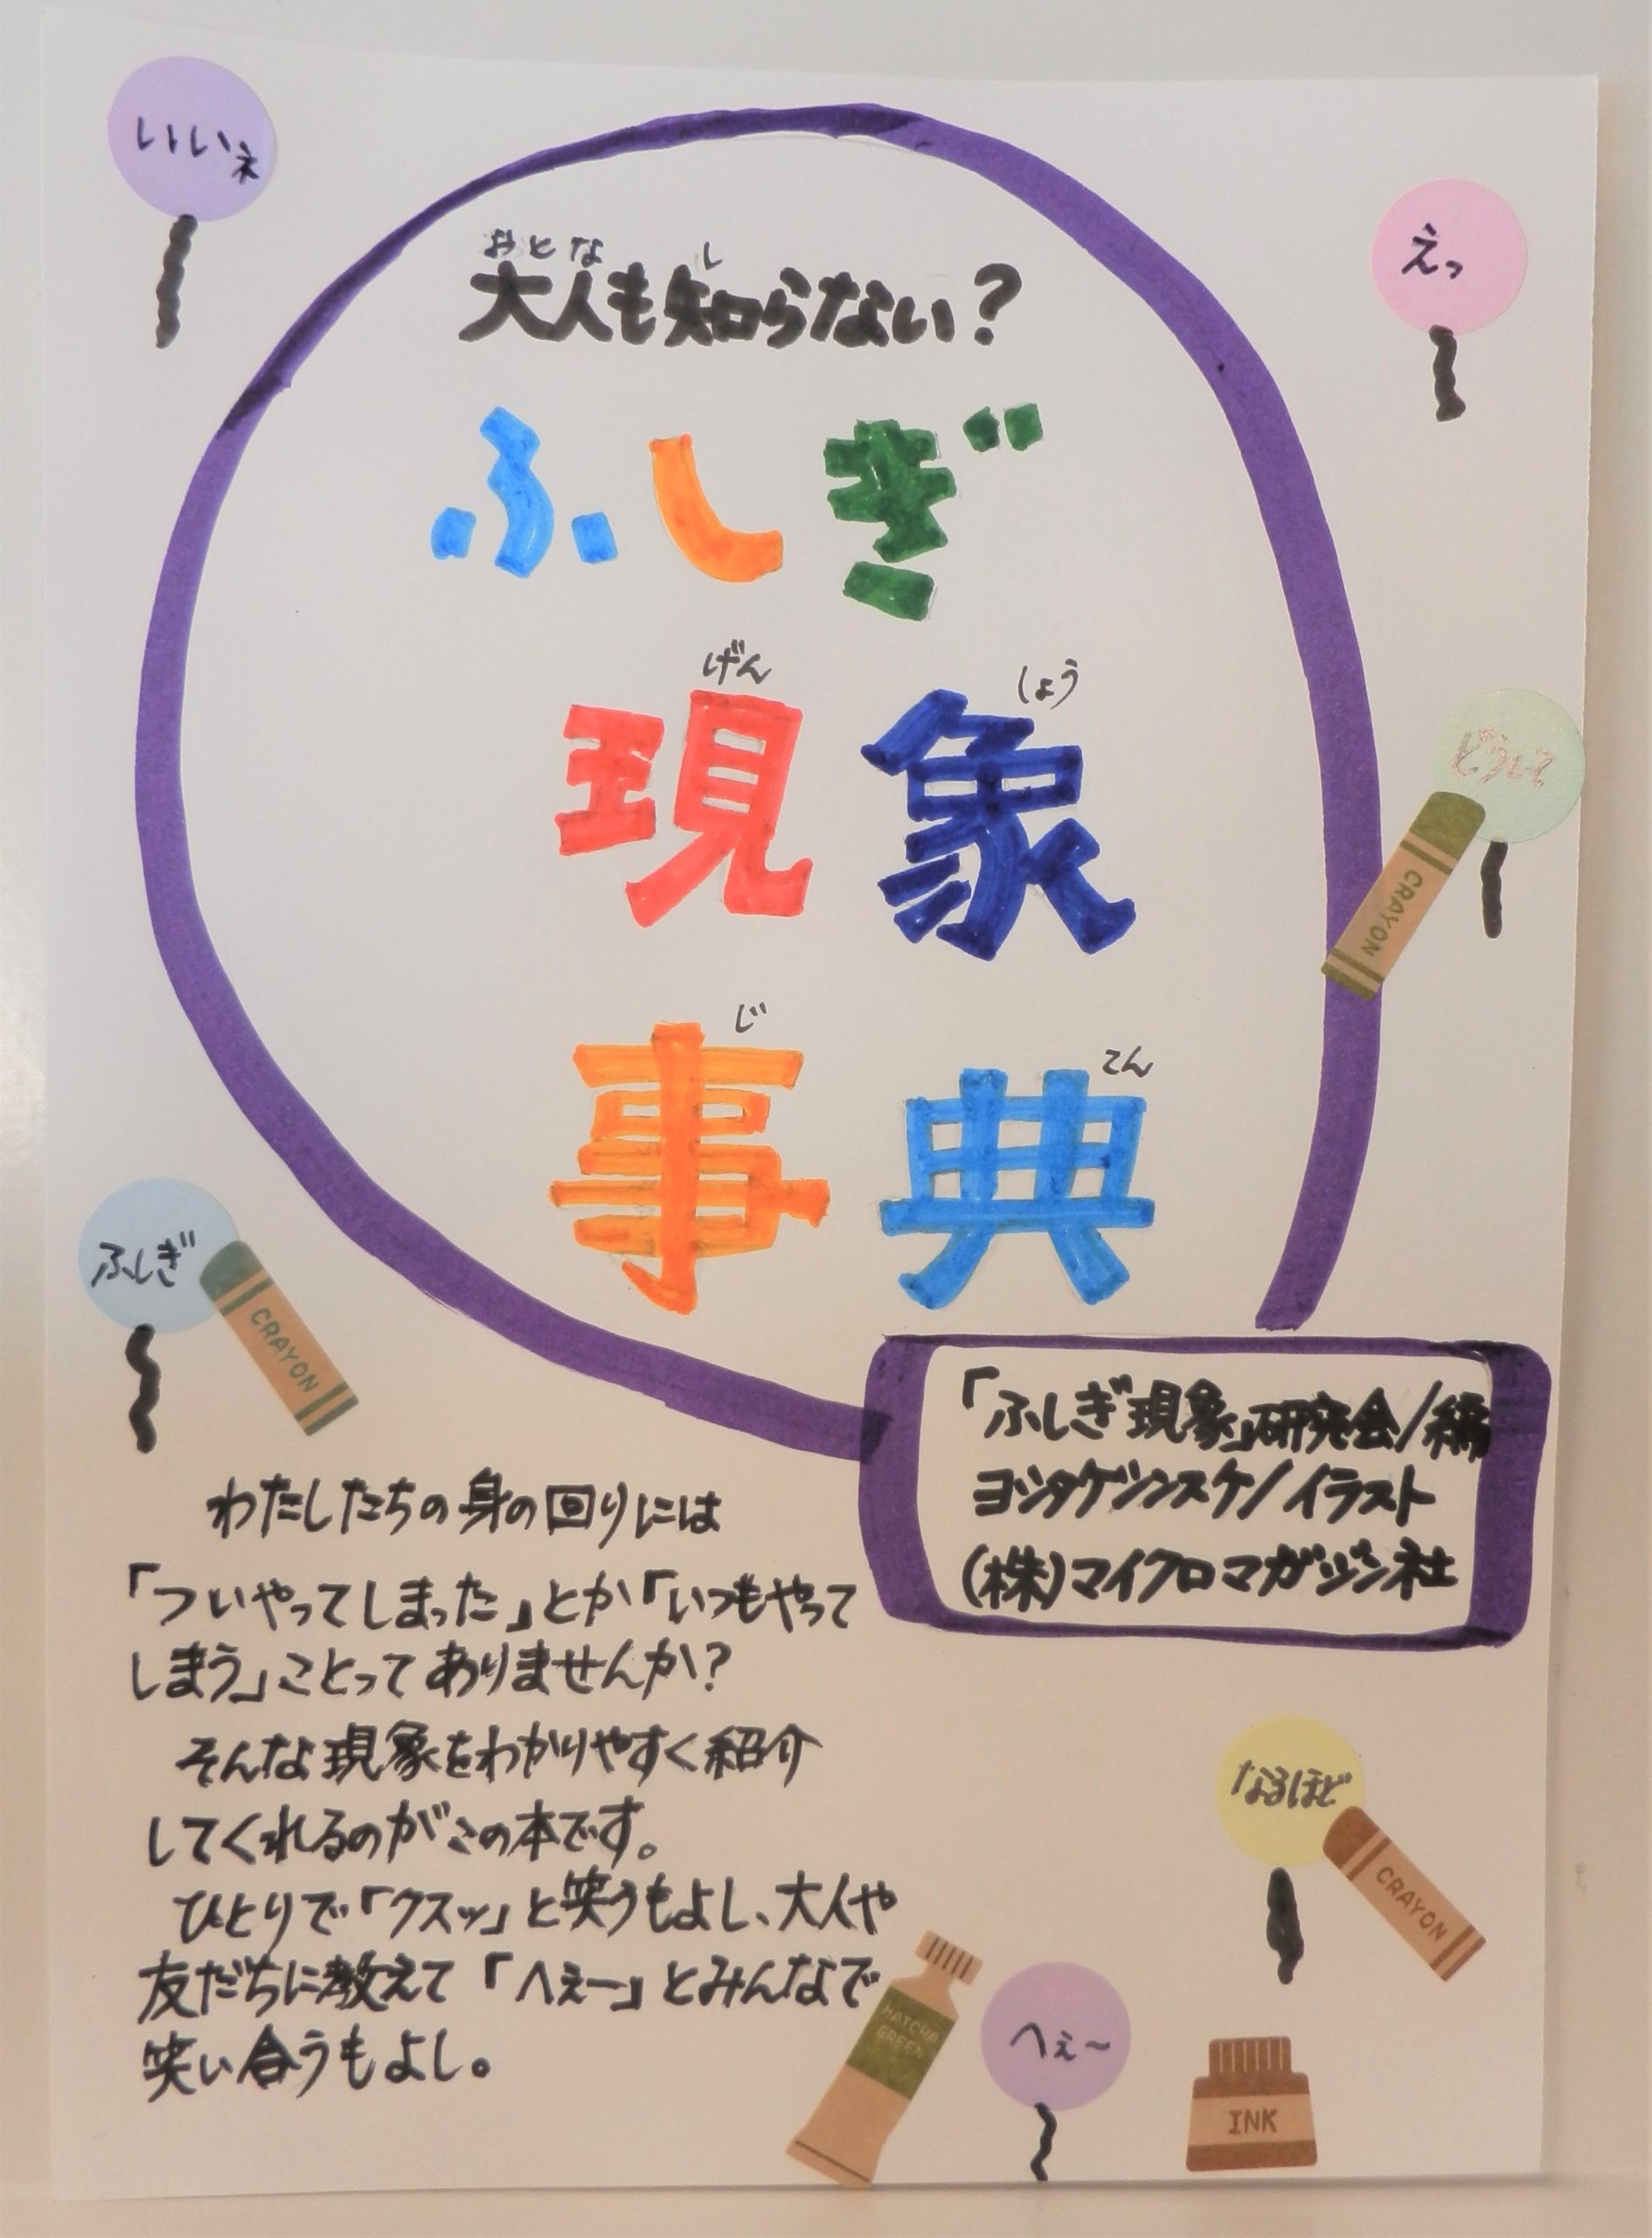 いいね
えっ
大人も知らない?
おとな
し
ふしぎ
げん
しょう
現象
どうして
CRAYON
じ
てん
事典
ふしぎ
CRAYON
「ふしぎ現象」研究会/編
ヨシタケシンスケ/イラスト
(株)マイクロマガジン社
わたしたちの身の回りには
「ついやってしまった」とか「いつもやって
しまう」ことってありませんか?
そんな現象をわかりやすく紹介
してくれるのがこの本です。
ひとりで「クスッ」と笑うもよし、大人や
友だちに教えて「へぇー」とみんなで
笑い合うもよし。
なるほど
CRAYON
MATCHA
GREEN
へぇ〜
INK